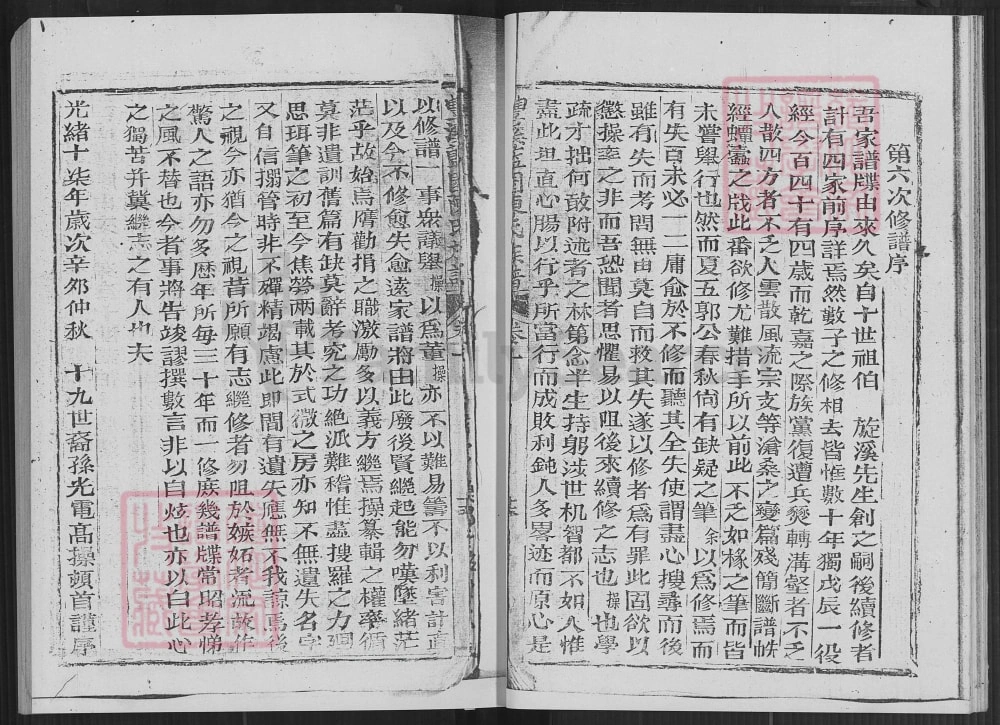 第六次修譜序
吾家譜牒由來久矣自十世祖伯 旋溪先生創之嗣後續修者
計有四家前序詳焉然數子之修相去皆惟數十年獨戌辰一役
經今百四十有四歲而乾嘉之際族黨復遭兵燹轉溝壑者不乏
人散四方者不乏人雲散風流宗支等滄桑之變篇殘簡斷譜帙
經蟫蠹之戕此番欲修尤難措手所以前此不乏如椽之筆而皆
未嘗舉行也然而夏五郭公春秋尙有缺疑之筆余以為修焉而
有失百未必一二庸愈於不修而聽其全失使謂盡心搜尋而後
雖有失而考問無由莫自而救其失遂以修者為有罪此固欲以
愆操率之非而吾恐聞者思懼易以阻後來續修之志也操也學
疏才拙何敢附述者之林第念半生持躬涉世机智都不如人惟
盡此坦直心腸以行乎所當行而成敗利鈍人多畧迹而原心是
以修譜一事衆議舉操以為董操亦不以難易籌不以利害計直
以及今不修愈失愈遠家譜將由此廢後賢繼起能勿嘆墜緒茫
茫乎故始焉膺勸捐之職激勵多以義方繼焉操纂輯之權率循
莫非遺訓舊篇有缺莫辭考究之功絶派難稽惟盡搜羅之力
思珥筆之初至今焦勞兩載其於式微之房亦知不無遺失名字
又自信搦管時非不殫精竭慮此即間有遺失應無不我諒焉後
之視今亦猶今之視昔所願有志繼修者勿阻於嫉妬者流故作
驚人之語亦勿多歷年所每三十年而一修庶幾譜牒常昭孝悌
之風不替也今者事將告竣謬撰數言非以自炫也亦以白此心
之獨苦并冀繼志之有人也夫
光緒十柒年歲次辛夘仲秋 十九世裔孫光電高操頓首謹序